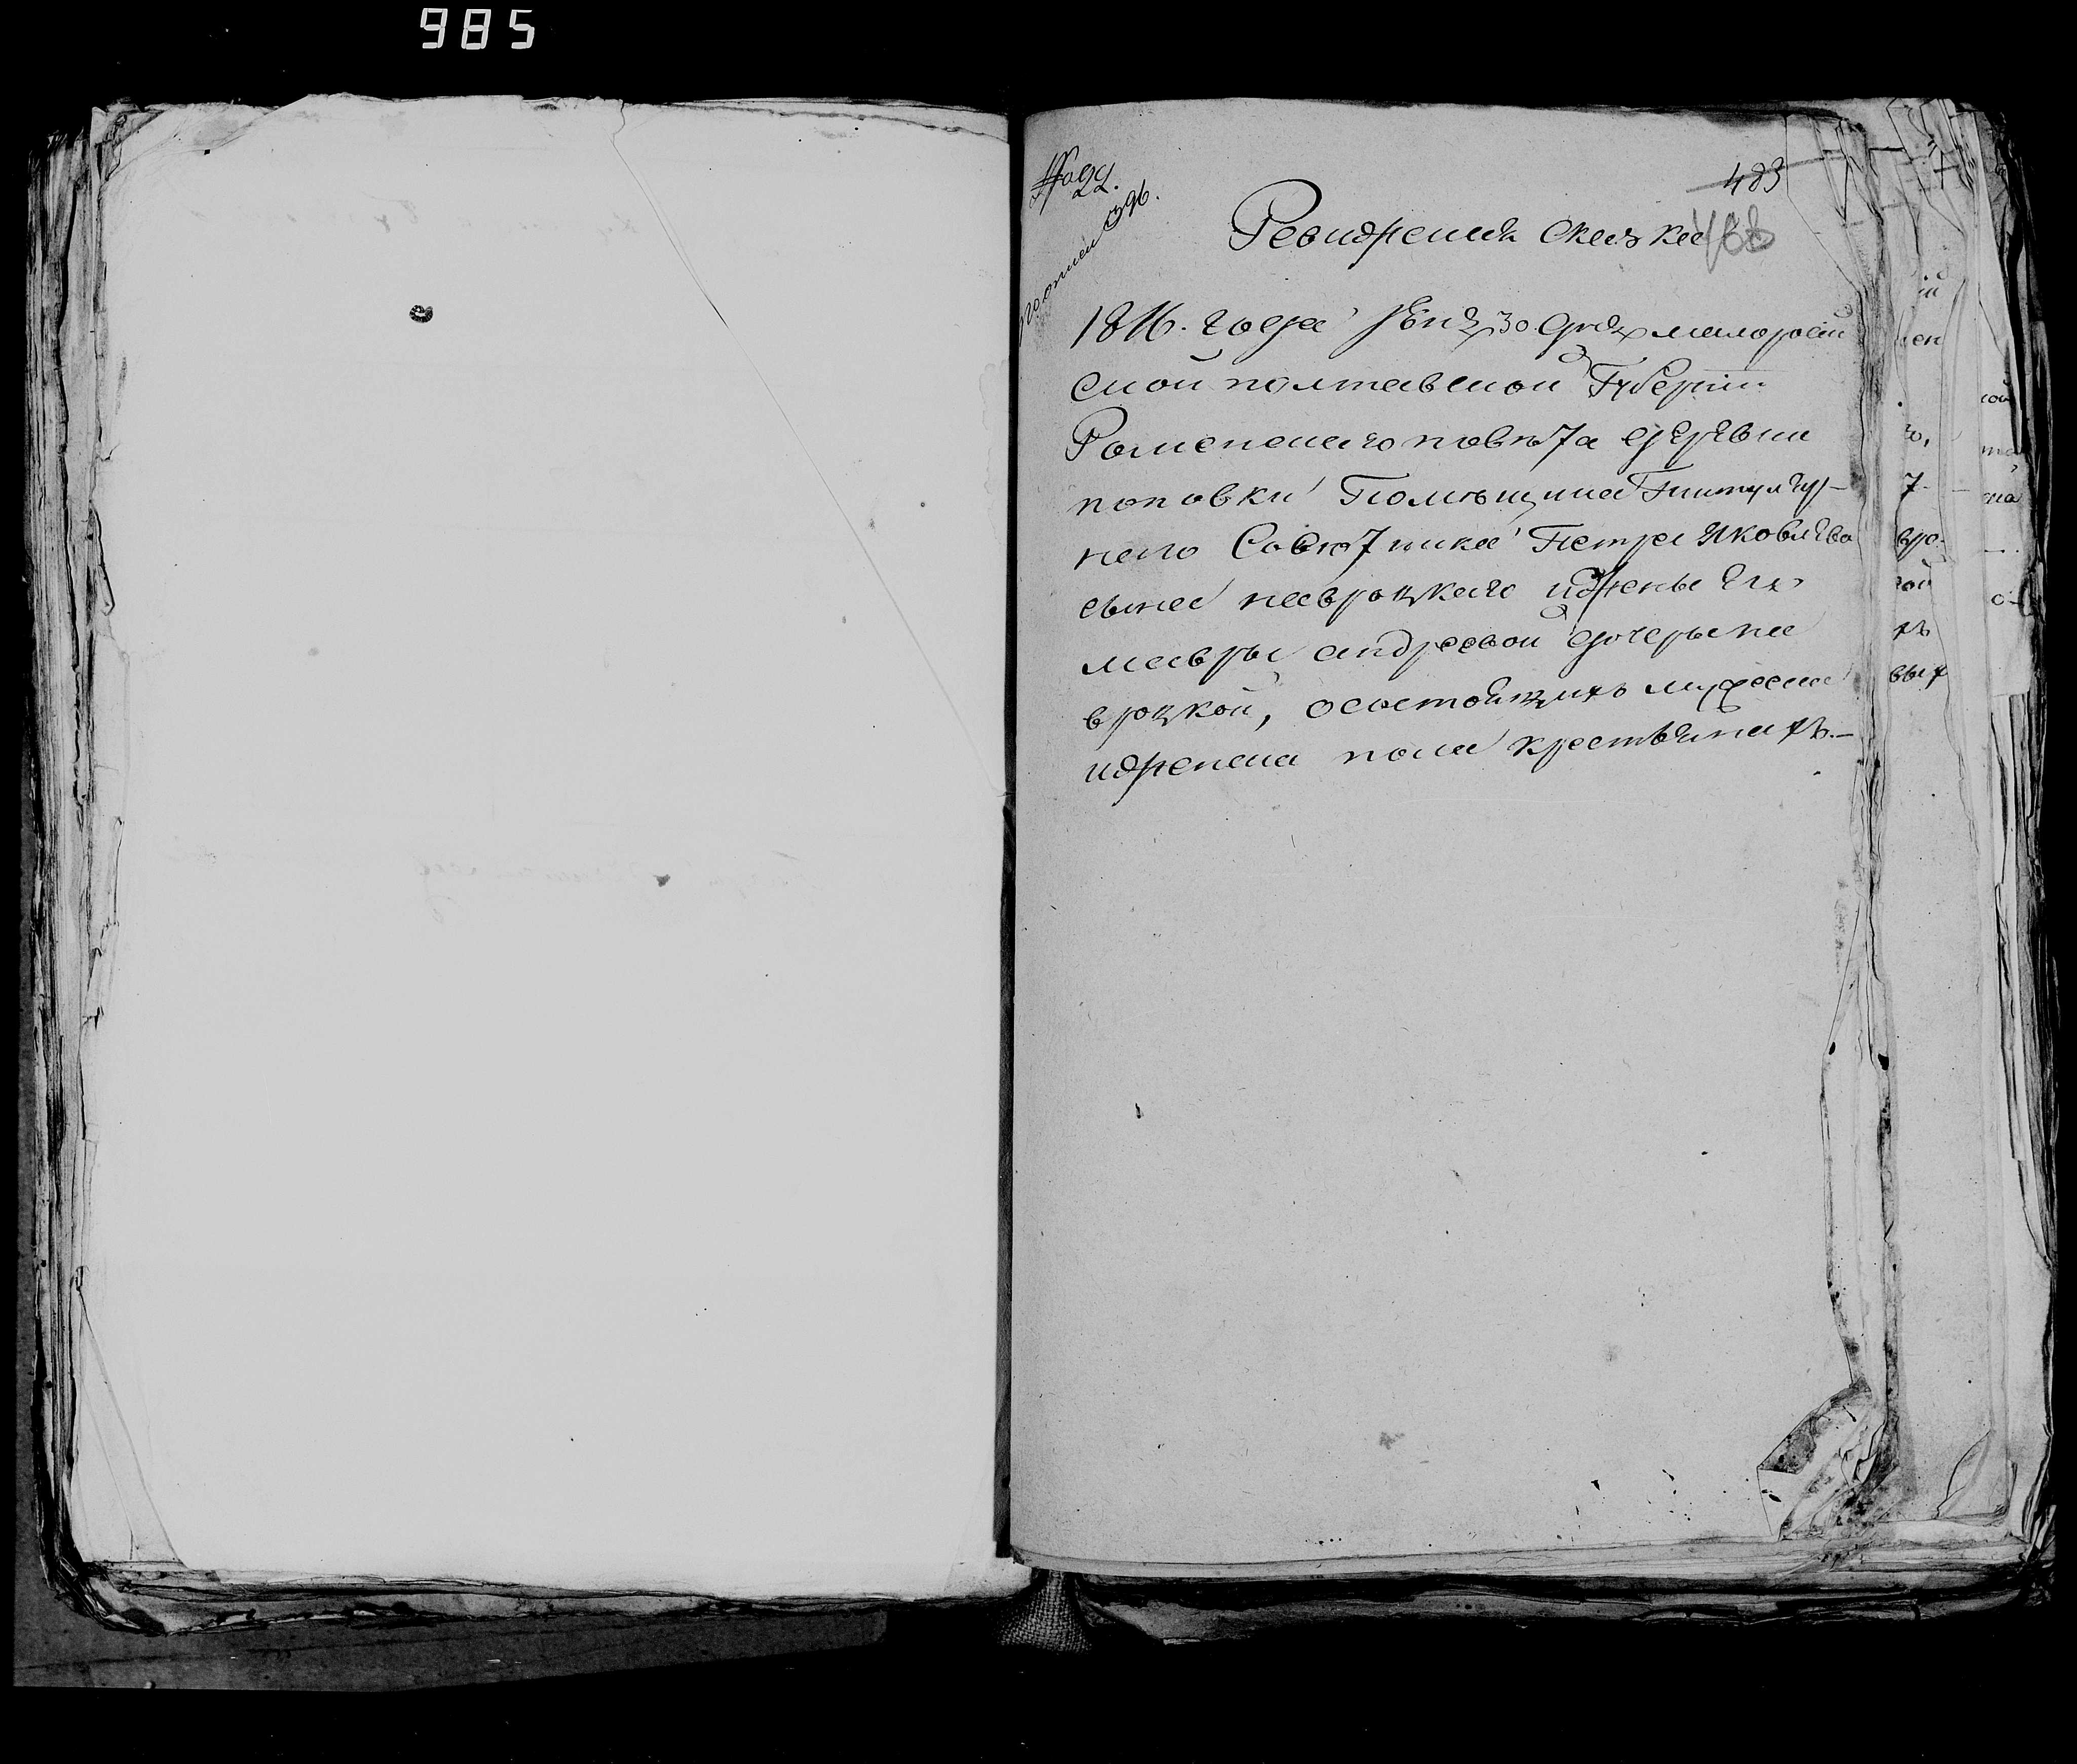 985
483
Ревизрская Скаска
1816. года 30. дня малоросий
ской полтавской Губернии
Роменскаго повѣта деревни
поповки Помѣщика титуляр-
наго Совѣтника Петра Яковлева
сына навроцкаго и жены Его
мавры андреевой дочеры на
вроцкой, осостоящихъ мужеска
и женска пола крестьянахъ.—